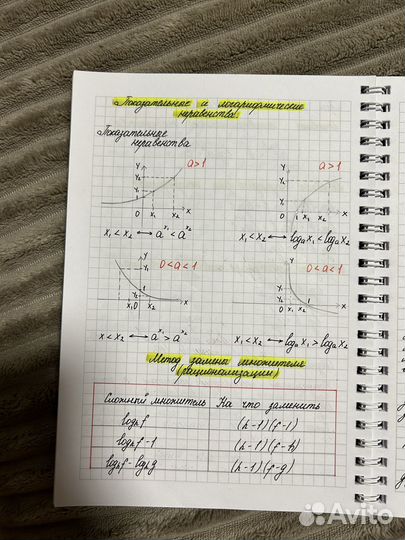 Показательные и логарифмические
неравенства.
Показательные
неравенства
a>1
a>1
y
y₂
y₁
1
0 x₁ x₂ x
y
y₂
y₁
0 1 x₁ x₂ x
x₁ < x₂ ⟷ aˣ¹ < aˣ²
x₁ < x₂ ⟷ logₐ x₁ < logₐ x₂
0<a<1
0<a<1
y
y₁
y₂
x
y
1
x
x < x₂ ⟷ aˣ¹ > aˣ²
x₁ < x₂ ⟷ logₐ x₁ > logₐ x₂
Метод замены множителя
(рационализации)
Сложный множитель На что заменить
logₕf (h-1)(f-1)
logₕf-1 (h-1)(f-h)
logₕf-logₕg (h-1)(f-g)
Avito